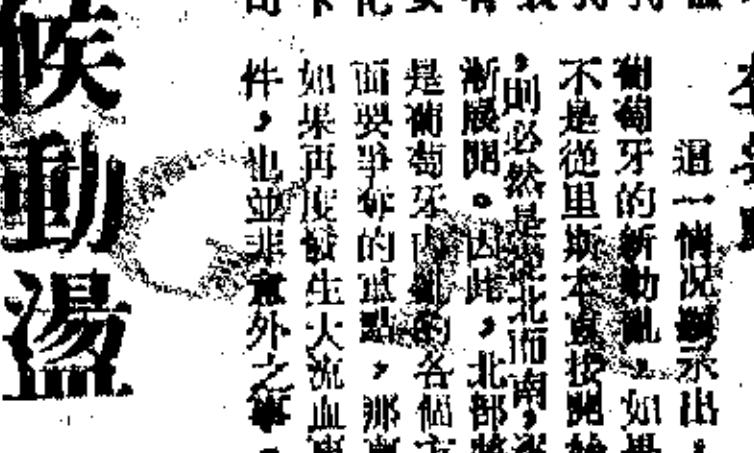 這一情況顯示出，
葡萄牙的新動亂，如果
不是從里斯本直接開始
，則必然是從北而南，逐
漸展開。因此，北部將
是葡萄牙內部的各個方
面要爭奪的重點，那裏
如果再度發生大流血事
件，也並非意外之事。
候動盪